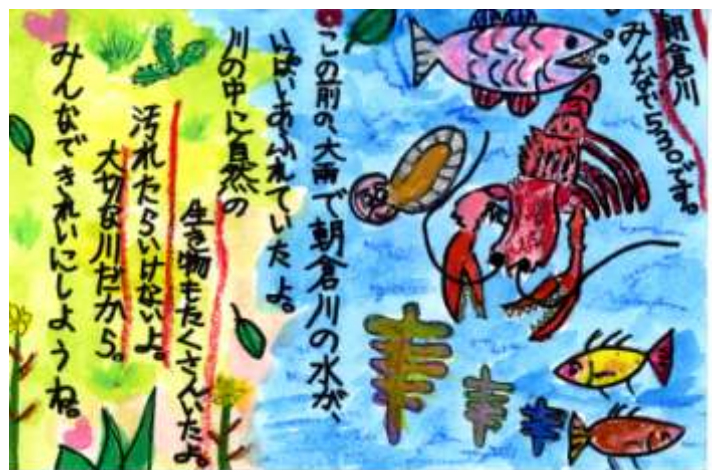 朝倉川
みんなで530です。
この前の、大雨で朝倉川の水が、
いぱいあふれていたよ。
川の中に自然の
生き物もたくさんいたよ。
汚れたらいけないよ。
大切な川だから。
みんなできれいにしようね。